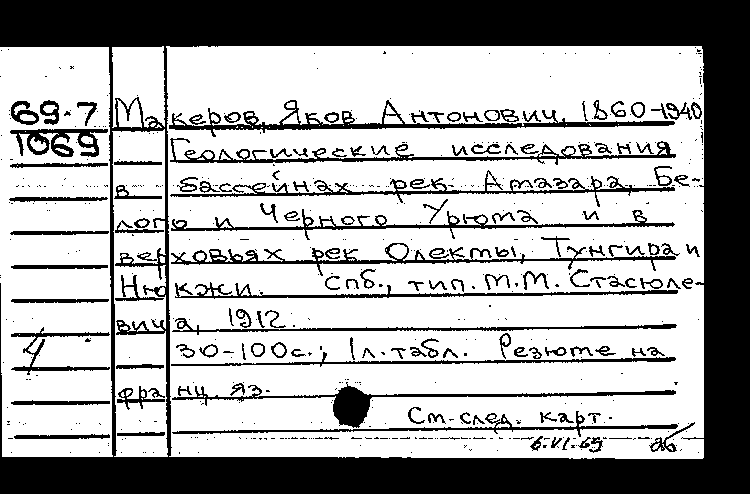 69·7
1069
Макеров, Яков Антонович, 1860-1940
Геологические исследования
в бассейнах рек Амазара, Бе-
лого и Черного Урюма и в
верховьях рек Олекмы, Тунгира и
Нюкжи. Спб., тип. М.М. Стасюле-
вича, 1912.
30-100с.; 1л.табл. Резюме на
франц. яз.
См. след. карт.
6.VI.69